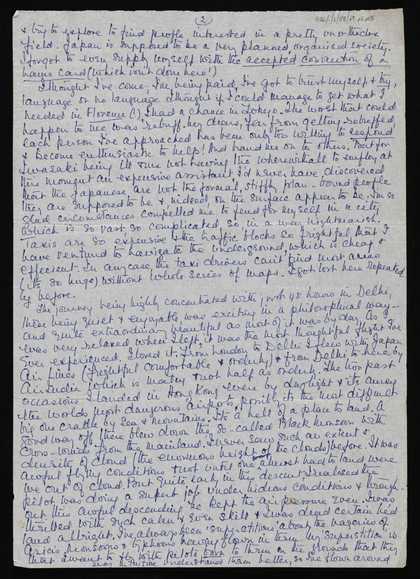 (2)
& try to explore to find people interested in a pretty unorthodox
field. Japan is supposed to be a very planned, organised society.
I forgot to even supply myself with the accepted convention of a
name card (which isn't done here!)
I thought I've come, I'm being paid, I've got to trust myself & try,
language or no language & thought if I could manage to get what I
needed in Florence (!) I had a chance in Tokyo. The worst that could
happen to me was rebuff. My dears, far from getting rebuffed,
each person I've approached has been only too willing to respond
& become enthusiastic & help! And hand me on to others. But for
Iwasaki being ill & me not having the wherewithal to employ at
this moment an expensive assistant I'd never have discovered
that the Japanese are not the formal, stiff, plan-bound people
they are supposed to be & indeed, on the surface appear to be. I'm so
glad circumstances compelled me to fend for myself in a city
which is so vast, so complicated, so in a way nightmarish.
Taxis are so expensive & the traffic blocks so frightful that I
have learned to navigate the underground, which is cheap &
efficient. In any case, the taxi drivers can't find most areas
(it's so huge) without whole series of maps. I got lost here repeatedly
by before.
The journey being highly concentrated with, not 48 hours in Delhi,
there being quiet & enjoyable was exciting in a philosophical way -
and quite extraordinary beautiful as most of it was by day. As
I was very relaxed when I left, it was the most thoughtful flight I've
ever experienced. I loved it. From London to Delhi I flew with Japan
Air Lines (frightful comfortable & orderly) & from Delhi to here by
Air India which is matey & not half as orderly. The two past
occasions I landed in Hong Kong were by daylight & its among
the world's most dangerous airports, possibly it's the most difficult
being on crabby by sea & mountains. It's a hell of a place to land. A
good way off, there blew down the so-called Black monsoon with
cross-winds from the mainland. I never saw such an extent &
density of cloud (the enormous height of the clouds) before. It was
awful flying conditions & not until one almost had to land were
we out of cloud. But quite early in this descent I realised the
pilot was doing a superb job under hideous conditions & through-
out this awful descending he kept the air pressure even. I was
thrilled with such calm & even skill & I was dead certain he'd
land all right. I've always been superstitious about the vagaries of
Asia's monsoons & typhoons having flown in them. My superstition is
that I want to fly with pilots born to them on the grounds that they
must by instinct understand them better, so I've flown around